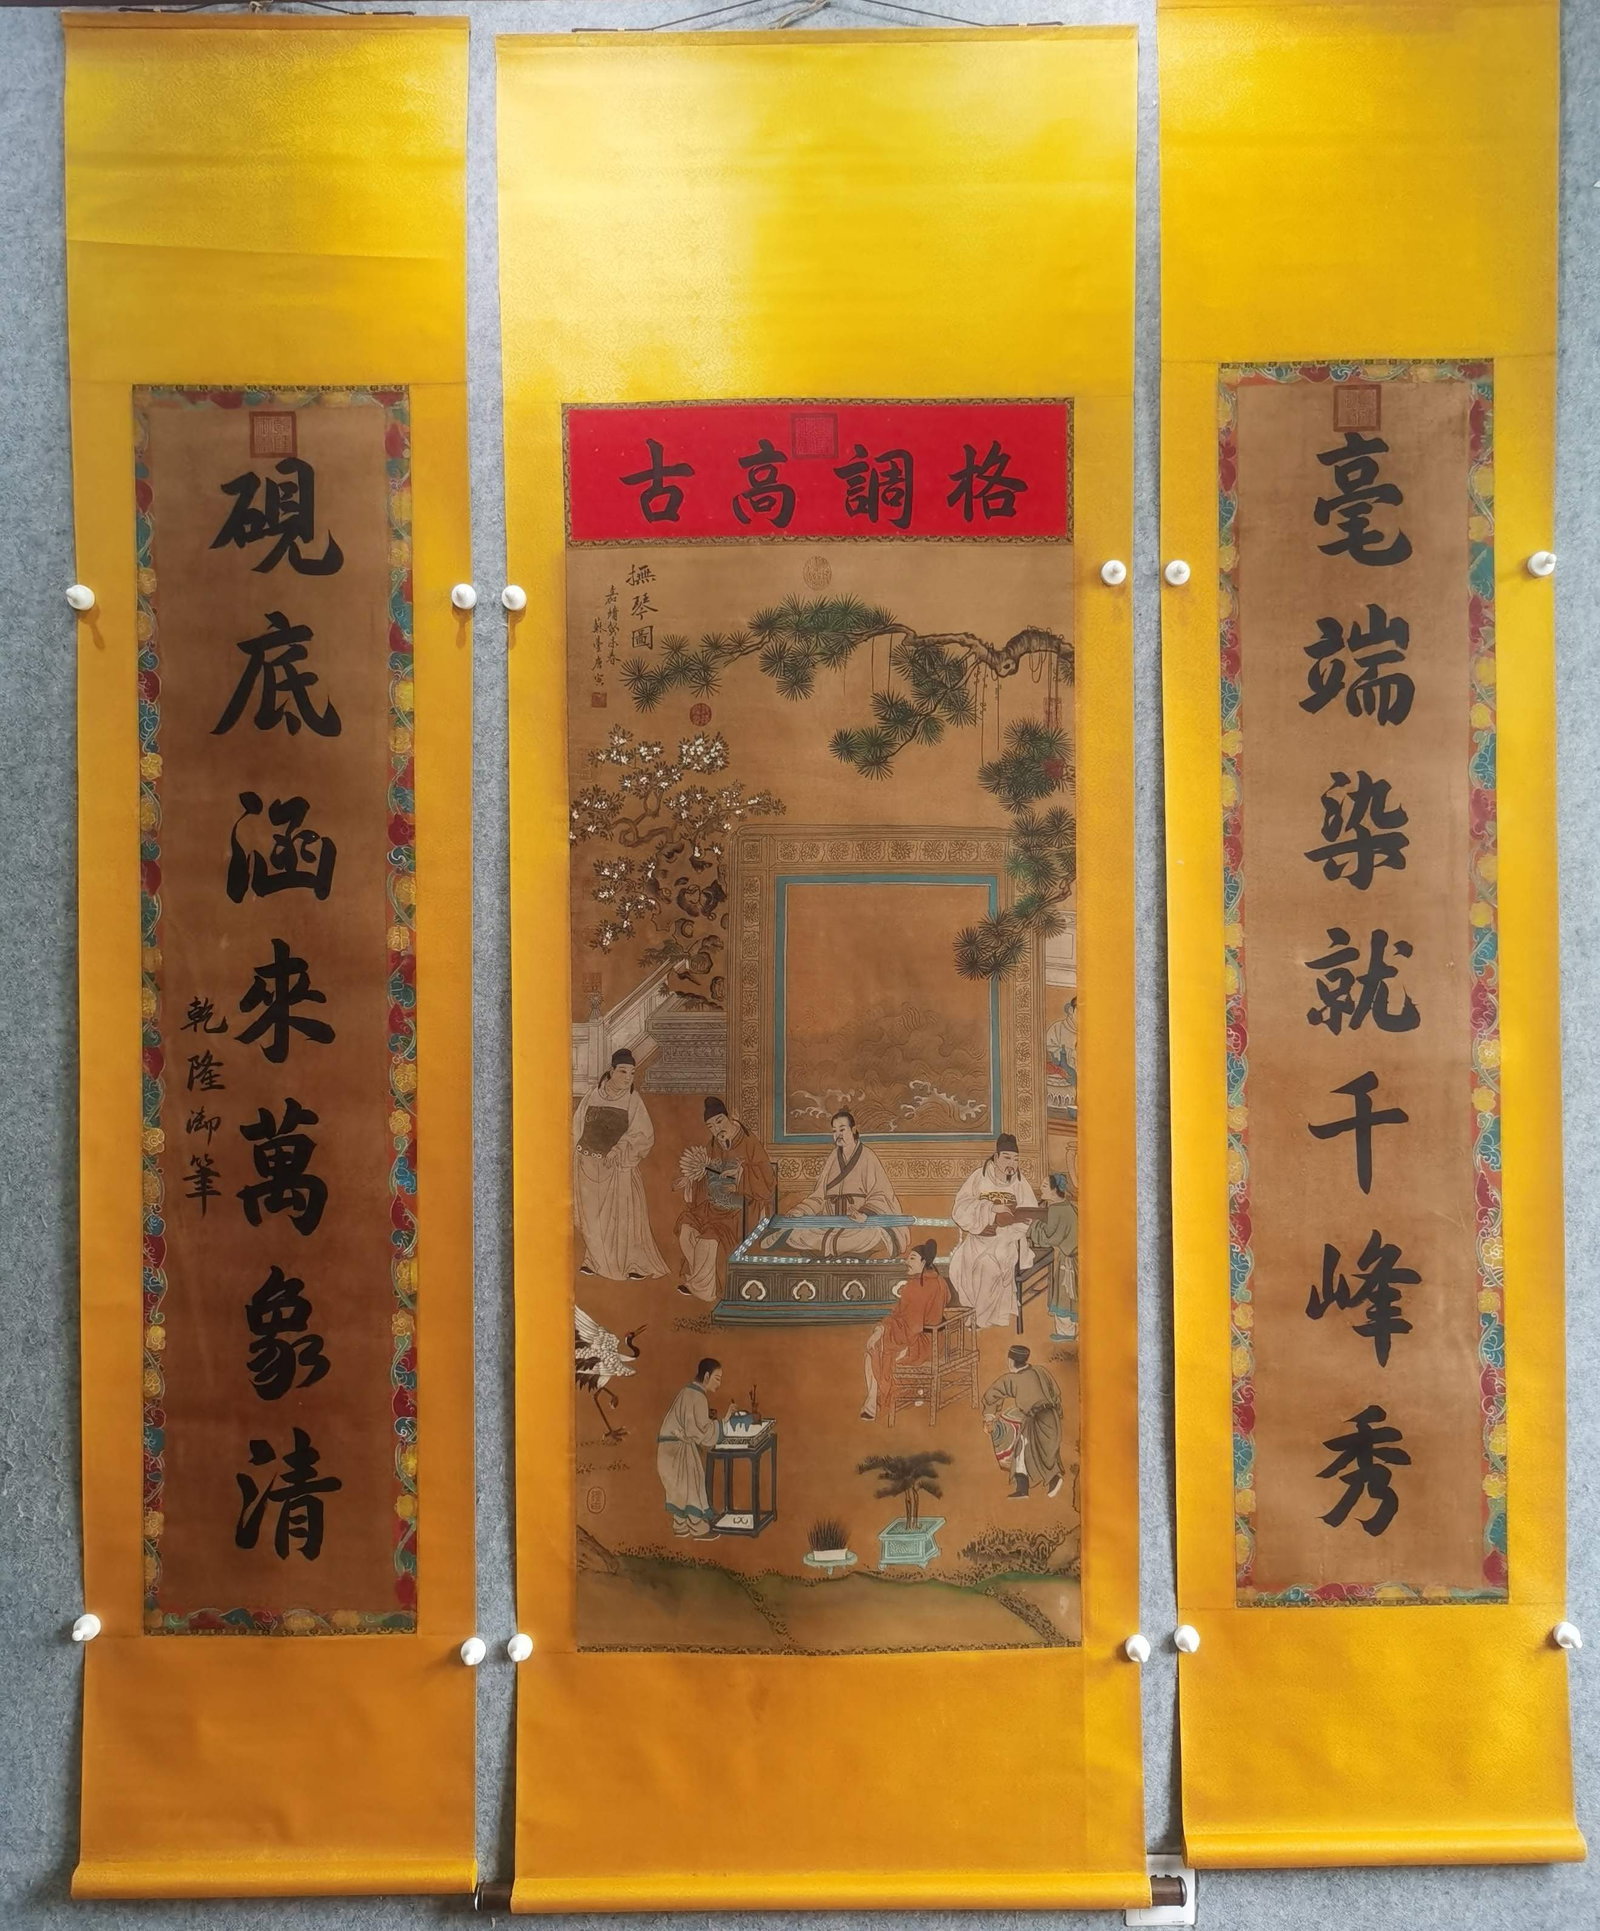 格調高古
毫端染就千峰秀
硯底涵來萬象清
乾隆御筆
撫琴圖
蘇臺唐寅